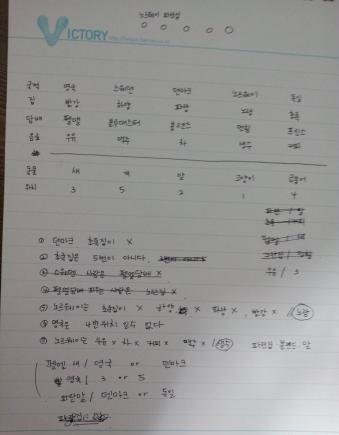 노르웨이 파란집
VICTORY
국적 영국 스웨덴 덴마크 노르웨이 독일
집 빨강 하양 파랑 노랑 초록
담배 팰맬 블루매스터 던힐 프린스
음료 우유 맥주 차 냉수 커피
동물 새 개 말 고양이 금붕어
위치 3 5 2 1 4
우유 / 3
① 덴마크 초록집이 X
② 초록집은 5번이 아니다.
③ 스웨덴 사람은 팰맬담배 X
⑤ 노르웨이는 초록집이 X 하양 X 파랑 X, 빨강 X / 노랑
⑥ 영국은 4번위치 일수 없다
⑦ 노르웨이는 우유 X 차 X 커피 X 맥주 X / 냉수 파란집·말
팰맬 새 / 영국 or 덴마크
영국 / 3 or 5
파란말 / 덴마크 or 독일